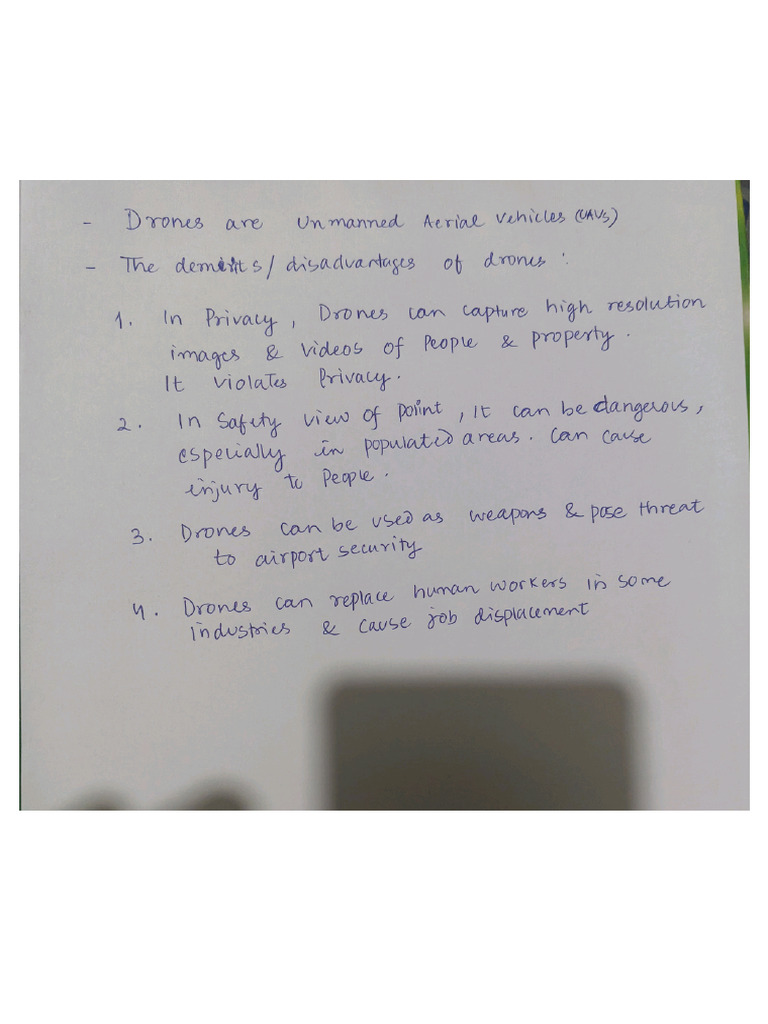 - Drones are Unmanned Aerial Vehicles (UAVs)
- The demerits/disadvantages of drones :
1. In Privacy, Drones can capture high resolution
images & videos of People & property.
It violates Privacy.
2. In Safety view of point, It can be dangerous,
especially in populated areas. Can cause
injury to People.
3. Drones can be used as weapons & pose threat
to airport security
4. Drones can replace human workers in some
industries & cause job displacement